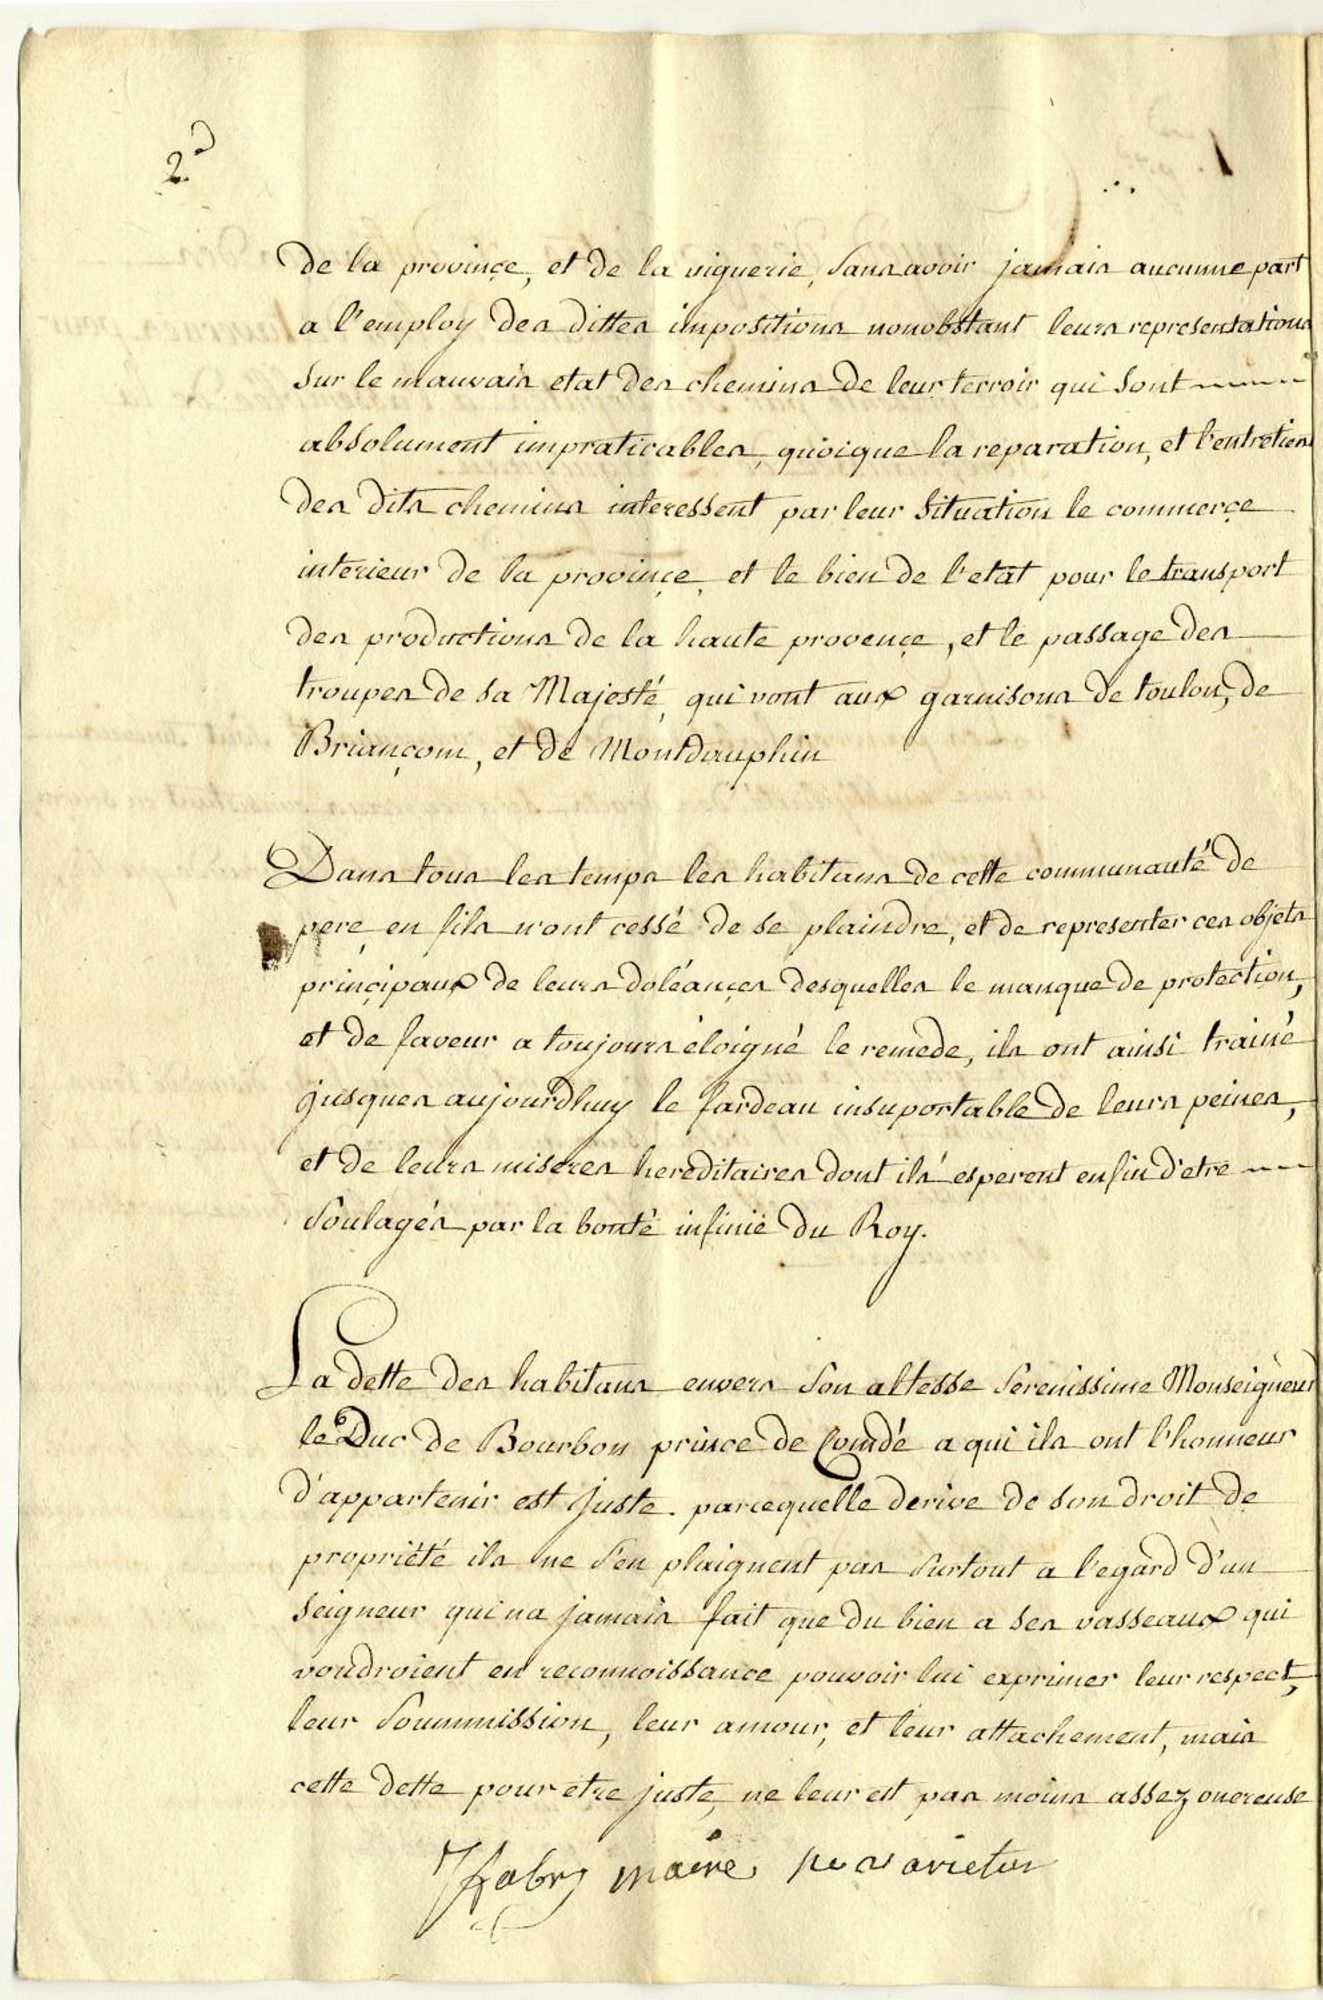 2.d
de la provinçe, et de la viguerie, sans avoir jamais aucunne part
a l'employ des dittes impositions nonobstant leurs representations
sur le mauvais etat des chemins de leur terroir qui sont
absolument impraticables, quoique la reparation, et l'entretien
des dits chemins interessent par leur situation le commerçe
interieur de la provinçe, et le bien de l'etat pour le transport
des productions de la haute provençe, et le passage des
troupes de sa Majesté, qui vont aux garnisons de toulon, de
Briançom, et de Montdauphin
Dans tous les temps les habitans de cette communauté de
pere en fils n'ont cessé de se plaindre, et de representer ces objets
prinçipaux de leurs doléançes desquelles le manque de protection,
et de faveur a toujours éloigné le remede, ils ont ainsi trainé
jusques aujourdhuy le fardeau insuportable de leurs peines,
et de leurs miseres hereditaires dont ils esperent enfin d'etre
soulagés par la bonté infinie du Roy.
La dette des habitans envers son altesse serenissime Monseigneur
le Duc de Bourbon prince de Comdé a qui ils ont l'honneur
d'appartenir est juste. parcequelle derive de son droit de
propriété ils ne s'en plaignent pas surtout a l'egard d'un
seigneur qui na jamais fait que du bien a ses vasseaux qui
voudroient en reconnoissance pouvoir lui exprimer leur respect,
leur soummission, leur amour, et leur attachement, mais
cette dette pour etre juste, ne leur est pas moins assez onereuse
fabry maire ne varietur